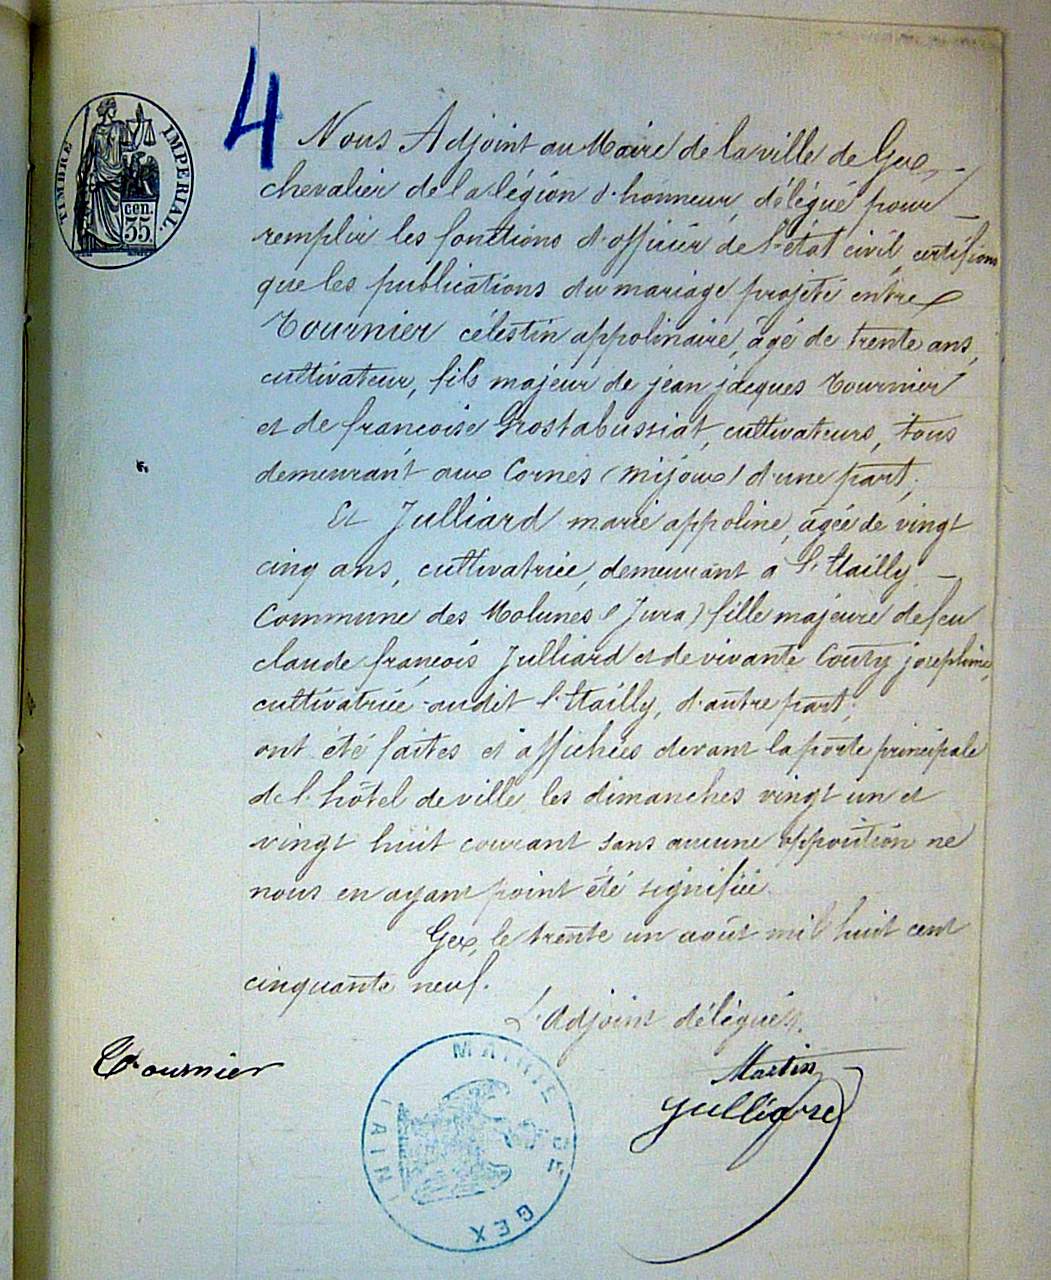 TIMBRE IMPÉRIAL.
cen.
35.
4
Nous Adjoint au Maire de la ville de Gex,
chevalier de la légion d'honneur, délégué pour
remplir les fonctions d'officier de l'état civil, certifions
que les publications du mariage projeté entre
Tournier célestin appolinaire, âgé de trente ans,
cultivateur, fils majeur de jean jacques Tournier
et de françoise Grostabussiat, cultivateurs, tous
demeurant aux Cornes (mijoux) d'une part,
Et Julliard marie appoline, âgée de vingt
cinq ans, cultivatrice, demeurant à l'Etailly
Commune des Molunes (Jura) fille majeure de feu
claude françois Julliard et de vivante Couty josephine,
cultivatrice audit l'Etailly, d'autre part;
ont été faites et affichées devant la porte principale
de l'hôtel de ville les dimanches vingt un et
vingt huit courant sans aucune opposition ne
nous en ayant point été signifiée.
Gex, le trente un août mil huit cent
cinquante neuf.
L'Adjoint délégué,
Tournier
Martin
Julliard
MAIRIE DE GEX
(AIN)